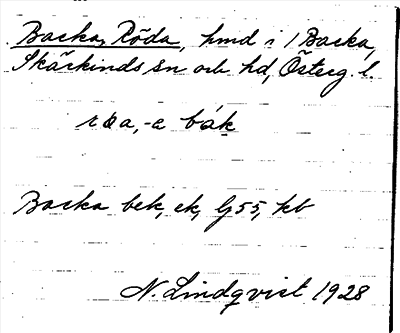 Backa, Röda, hmd i 1 Backa,
Skärkinds sn och hd, Österg. l.
röa, -e bak
Backa bek, ek, G55, kb
N. Lindqvist 1928